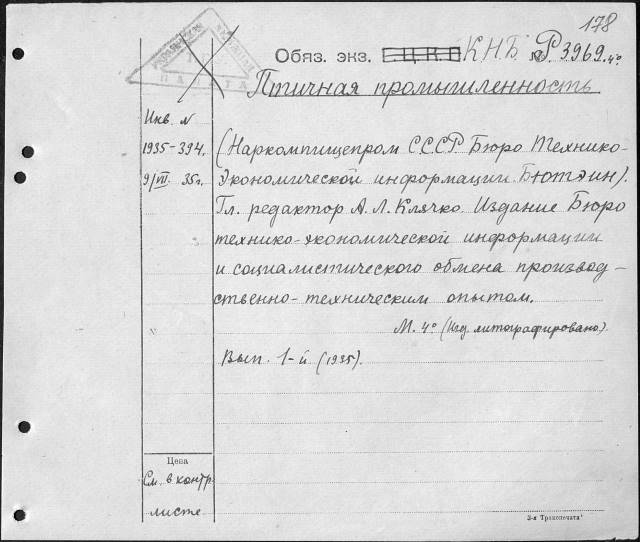 178
Обяз. экз. Е.Ц.К.П КНБ № Р 3969.4°
ПАЛАТА
Птичная промышленность
Инв. N
1935-394. (Наркомпищепром СССР Бюро Технико-
9/VII. 35г. Экономической информации. Бютэин).
Гл. редактор А.Л. Клячко. Издание Бюро
технико-экономической информации
и социалистического обмена производ-
ственно-техническим опытом.
М. 4° (Изд. литографировано).
Вып. 1-й (1935).
Цена
См. в контр.
листе
3-я Транспечать